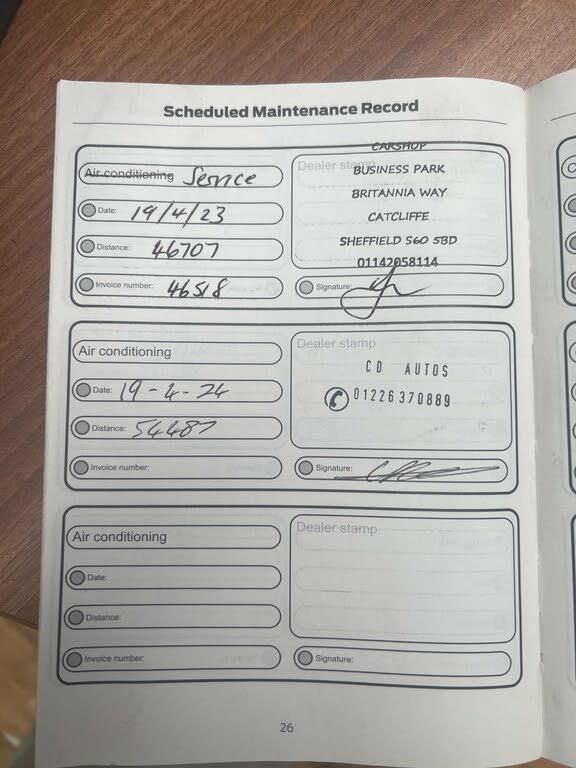 Scheduled Maintenance Record
Air conditioning Service
Date: 19/4/23
Distance: 46707
Invoice number: 46518
Dealer stamp
CARSHOP
BUSINESS PARK
BRITANNIA WAY
CATCLIFFE
SHEFFIELD S60 5BD
01142058114
Signature:
Air conditioning
Date: 19-4-24
Distance: 54487
Invoice number:
Dealer stamp
CD AUTOS
01226 370889
Signature:
Air conditioning
Date:
Distance:
Invoice number:
Dealer stamp
Signature:
26